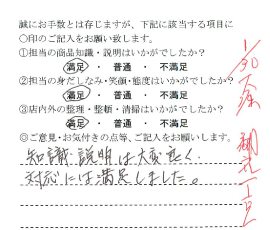 誠にお手数とは存じますが、下記に該当する項目に
○印のご記入をお願い致します。
①担当の商品知識・説明はいかがでしたか?
満足 ・ 普通 ・ 不満足
②担当の身だしなみ・笑顔・態度はいかがですか?
満足 ・ 普通 ・ 不満足
③店内外の整理・整頓・清掃はいかがでしたか?
満足 ・ 普通 ・ 不満足
◎ご意見・お気付きの点等、ご記入をお願いします。
知識、説明は大変良く、
対応には満足しました。
1/30